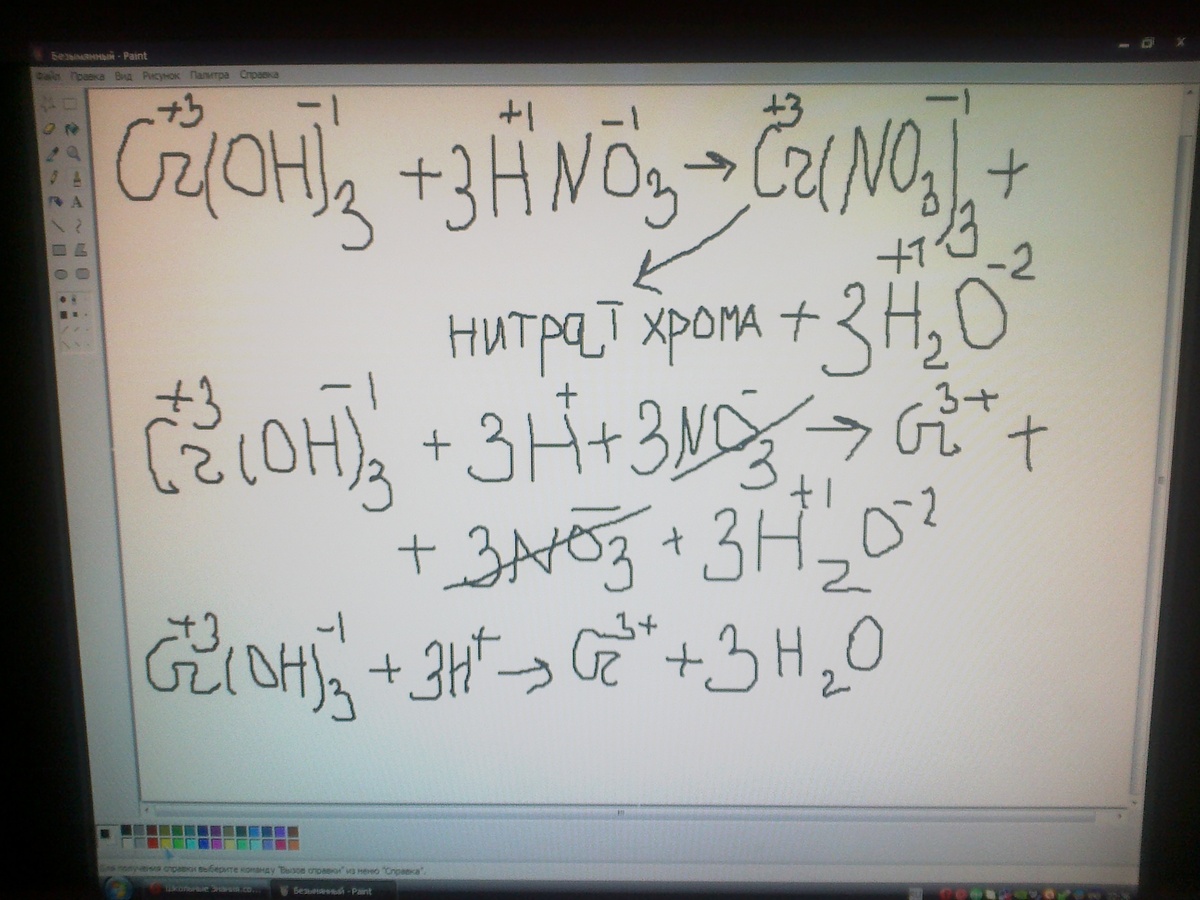 Безымянный - Paint
Файл Правка Вид Рисунок Палитра Справка
Cr⁺³(OH)₃⁻¹ + 3H⁺¹NO₃⁻¹ → Cr⁺³(NO₃)₃⁻¹ +
нитрат хрома + 3H₂⁺¹O⁻²
Cr⁺³(OH)₃⁻¹ + 3H⁺ + 3NO₃⁻ → Cr³⁺ +
+ 3NO₃⁻ + 3H₂⁺¹O⁻²
Cr⁺³(OH)₃⁻¹ + 3H⁺ → Cr³⁺ + 3H₂O
Для получения справки выберите команду "Вызов справки" из меню "Справка".
Школьные Знания.co... Безымянный - Paint